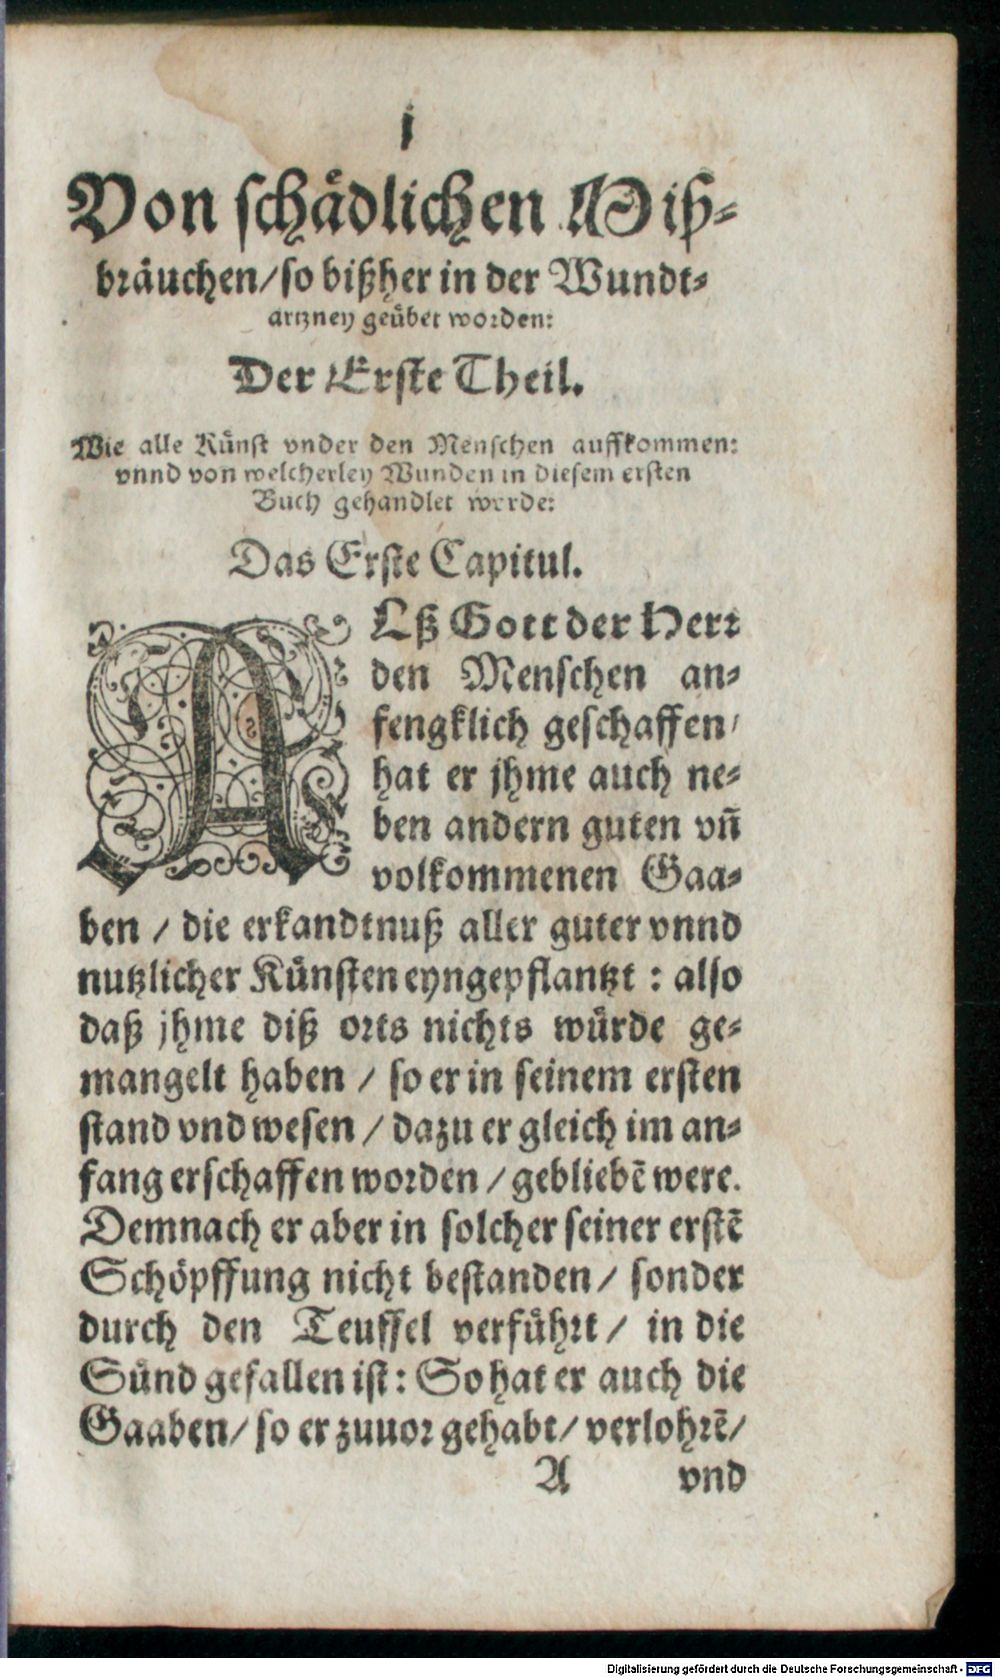 1
Von schädlichen Miß-
bräuchen/so bißher in der Wundt-
artzney geübet worden:
Der Erste Theil.
Wie alle Künst vnder den Menschen auffkommen:
vnnd von welcherley Wunden in diesem ersten
Buch gehandlet werde:
Das Erste Capitul.
ALß Gott der Herr
den Menschen an-
fengklich geschaffen/
hat er jhme auch ne-
ben andern guten vñ
volkommenen Gaa-
ben / die erkandtnuß aller guter vnnd
nutzlicher Künsten eyngepflantzt : also
daß jhme diß orts nichts würde ge-
mangelt haben / so er in seinem ersten
stand vnd wesen / dazu er gleich im an-
fang erschaffen worden / gebliebē were.
Demnach er aber in solcher seiner erstē
Schöpffung nicht bestanden / sonder
durch den Teuffel verführt / in die
Sünd gefallen ist : So hat er auch die
Gaaben/ so er zuuor gehabt/ verlohrē/
A vnd
Digitalisierung gefördert durch die Deutsche Forschungsgemeinschaft - DFG